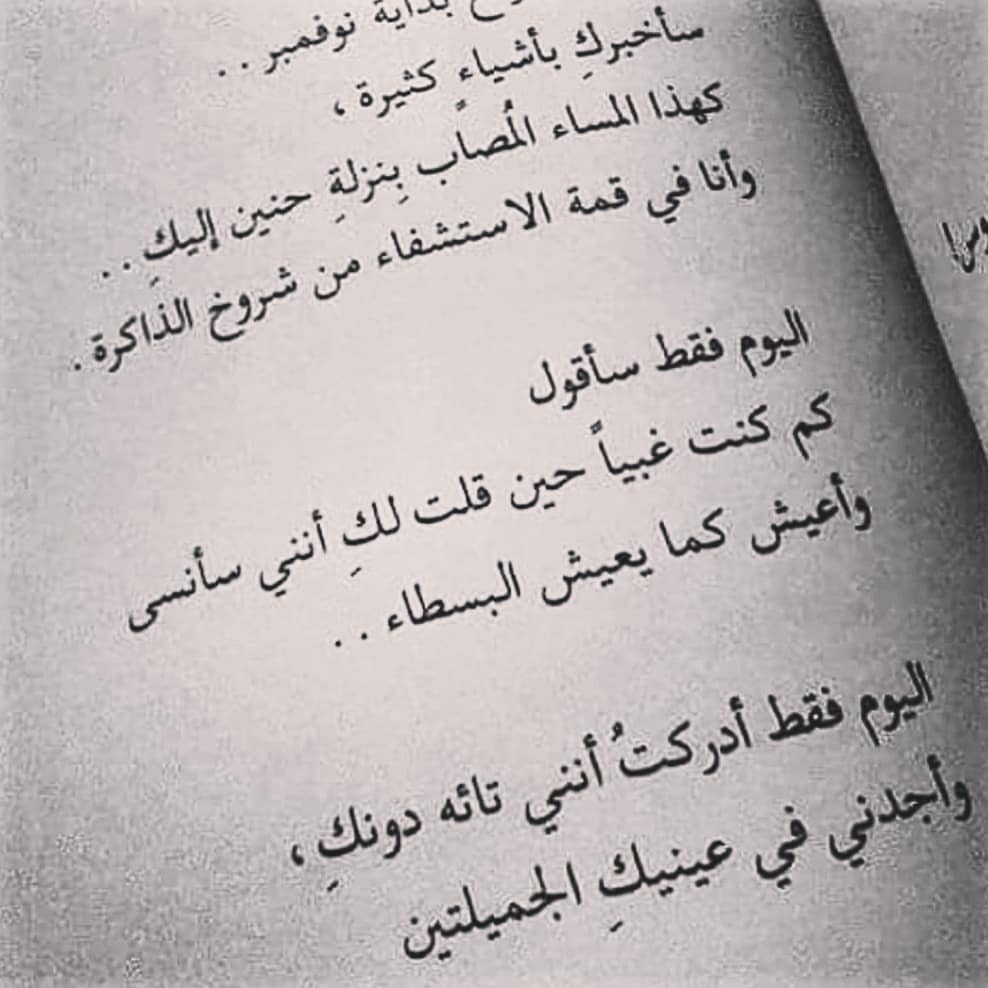 بداية نوفمبر . .
سأخبركِ بأشياءٍ كثيرة ،
كهذا المساء المُصاب بِنزلةِ حنين إليكِ . .
وأنا في قمة الاستشفاء من شروخ الذاكرة .
اليوم فقط سأقول
كم كنت غبياً حين قلت لكِ أنني سأنسى
وأعيش كما يعيش البسطاء . .
اليوم فقط أدركتُ أنني تائه دونكِ ،
وأجدني في عينيكِ الجميلتين